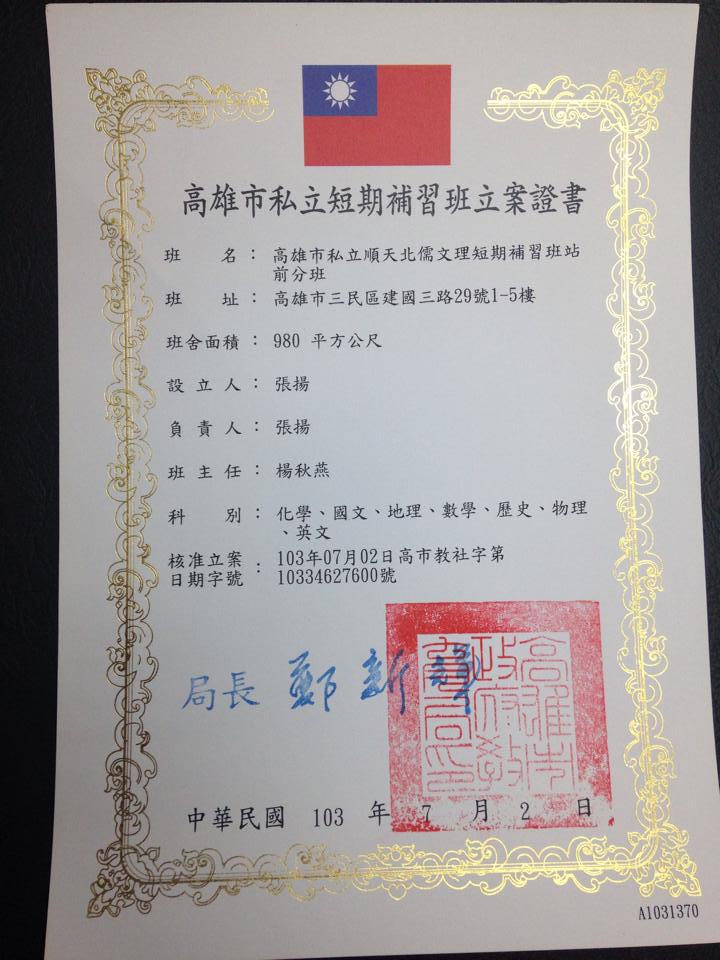 高雄市私立短期補習班立案證書
班名：高雄市私立順天北儒文理短期補習班站
前分班
班址：高雄市三民區建國三路29號1-5樓
班舍面積：980 平方公尺
設立人：張揚
負責人：張揚
班主任：楊秋燕
科別：化學、國文、地理、數學、歷史、物理
、英文
核准立案 103年07月02日高市教社字第
日期字號：10334627600號
局長 鄭新輝
高雄市
政府教
育局印
中華民國 103 年 7 月 2 日
A1031370